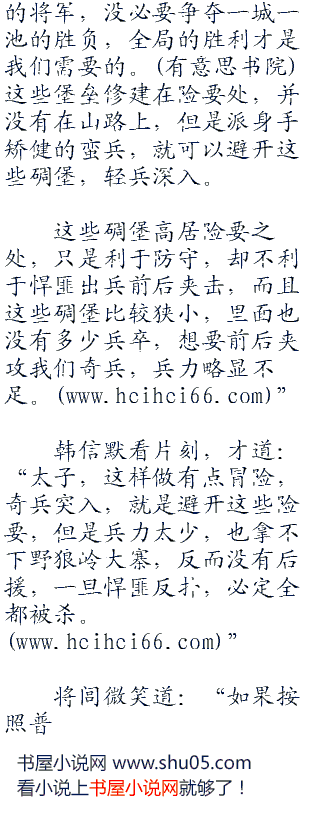 的将军，没必要争夺一城一
池的胜负，全局的胜利才是
我们需要的。(有意思书院)
这些堡垒修建在险要处，并
没有在山路上，但是派身手
矫健的蛮兵，就可以避开这
些碉堡，轻兵深入。
这些碉堡高居险要之
处，只是利于防守，却不利
于悍匪出兵前后夹击，而且
这些碉堡比较狭小，里面也
没有多少兵卒，想要前后夹
攻我们奇兵，兵力略显不
足。(www.hcihci66.com)”
韩信默看片刻，才道：
“太子，这样做有点冒险，
奇兵突入，就是避开这些险
要，但是兵力太少，也拿不
下野狼岭大寨，反而没有后
援，一旦悍匪反扑，必定全
都被杀。
(www.hcihci66.com)”
将闾微笑道：“如果按
照普
书屋小说网 www.shu05.com
看小说上书屋小说网就够了！